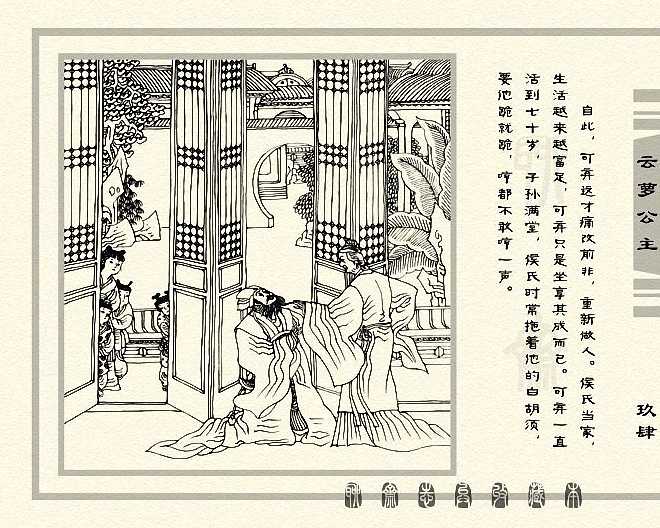 自此，可弃这才痛改前非，重新做人。侯氏当家，
生活越来越富足，可弃只是坐享其成而已。可弃一直
活到七十岁，子孙满堂，侯氏时常拖着他的白胡须，
要他跪就跪，哼都不敢哼一声。
云萝公主
玖肆
聊斋志异收藏本